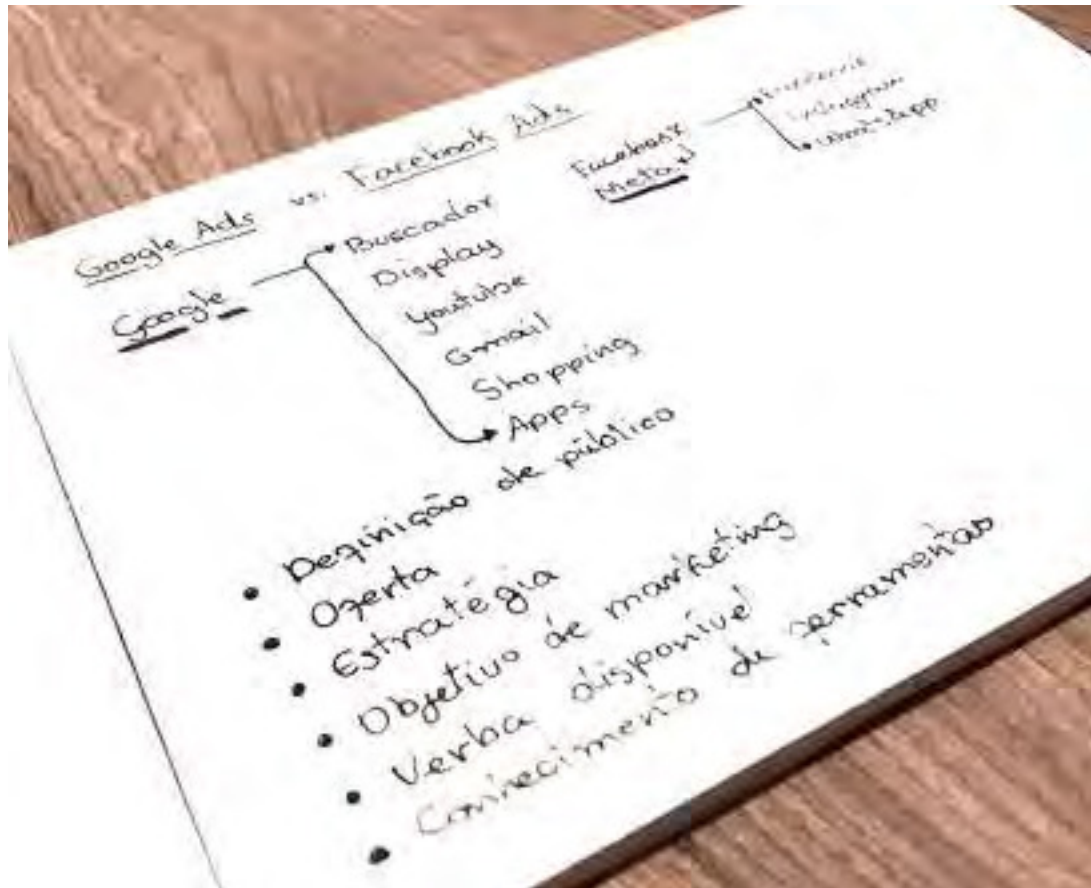 Google Ads vs. Facebook Ads
Google
Buscador
Display
Youtube
Gmail
Shopping
Apps
Facebook
Meta
Facebook
Instagram
WhatsApp
• Definição de público
• Oferta
• Estratégia
• Objetivo de marketing
• Verba disponível
• Conhecimento de ferramentas